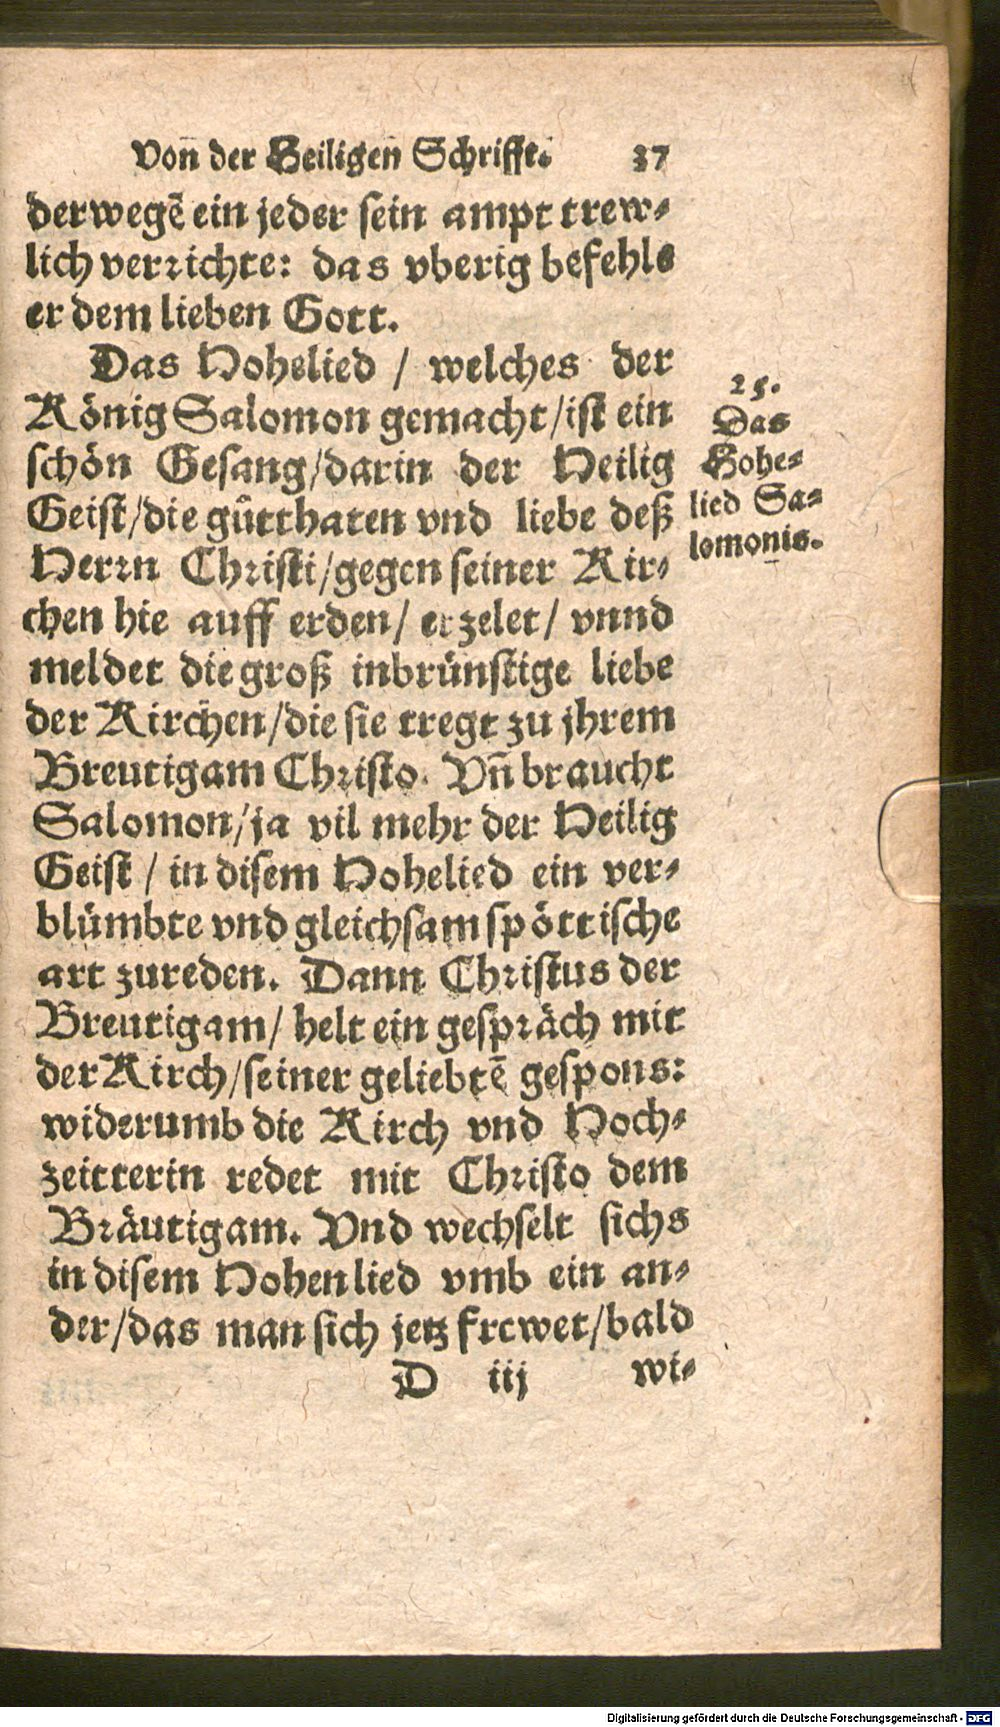 Von̄ der Heiligen̄ Schrifft. 37
derwegẽ ein jeder sein ampt trew-
lich verrichte: das vberig befehle
er dem lieben Gott.
Das Hohelied / welches der
König Salomon gemacht/ist ein
schön Gesang/darin der Heilig
Geist/die gůtthaten vnd liebe deß
Herrn Christi/gegen seiner Kir-
chen hie auff erden/ erzelet/ vnnd
meldet die groß inbrünstige liebe
der Kirchen/die sie tregt zu jhrem
Breutigam Christo. Vn̄ braucht
Salomon/ja vil mehr der Heilig
Geist / in disem Hohelied ein ver-
blümbte vnd gleichsam spöttische
art zureden. Dann Christus der
Breutigam/ helt ein gespräch mit
der Kirch/seiner geliebtẽ gespons:
widerumb die Kirch vnd Hoch-
zeitterin redet mit Christo dem
Bräutigam. Vnd wechselt sichs
in disem Hohenlied vmb ein an-
der/das man sich jetz frewet/bald
D iij wi-
25.
Das
Hohe-
lied Sa-
lomonis.
Digitalisierung gefördert durch die Deutsche Forschungsgemeinschaft - DFG